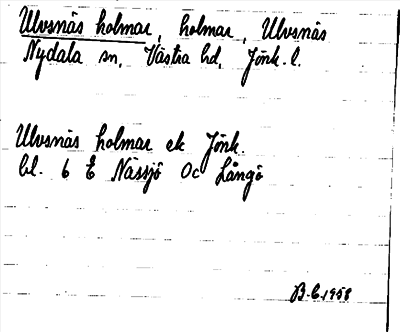 Ulvsnäs holmar, holmar, Ulvsnäs
Nydala sn, Västra hd, Jönk. l.
Ulvsnäs holmar ek Jönk.
bl. 6 E Nässjö Oc Långö
B.C. 1958